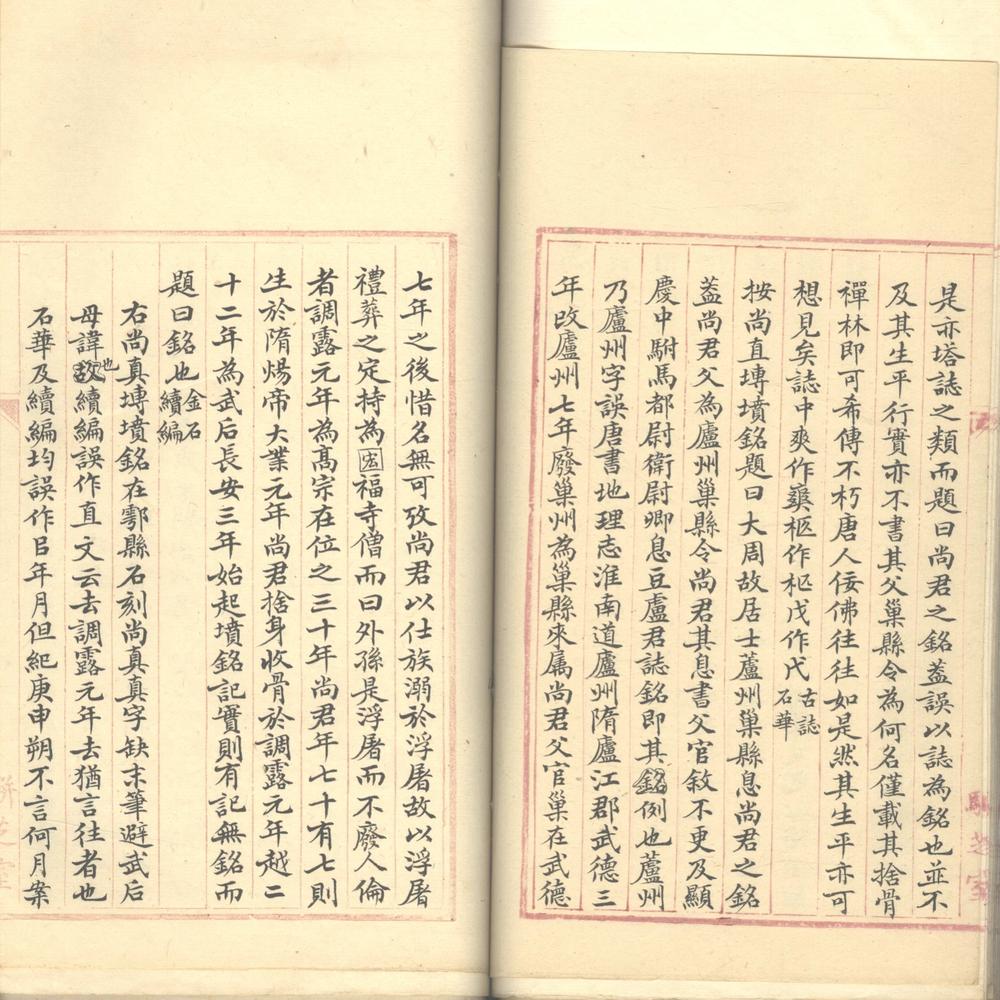 是亦塔誌之類而題曰尚君之銘葢誤以誌為銘也並不
及其生平行實亦不書其父巢縣令為何名僅載其捨骨
禪林即可希傳不朽唐人佞佛往往如是然其生平亦可
想見矣誌中爽作𠁊柩作柩戊作戍古誌
石華
按尚直塼墳銘題曰大周故居士蘆州巢縣息尚君之銘
葢尚君父為廬州巢縣令尚君其息書父官敘不更及顯
慶中駙馬都尉衛尉卿息豆盧君誌銘即其銘例也蘆州
乃廬州字誤唐書地理志淮南道廬州隋廬江郡武德三
年改廬州七年廢巢州為巢縣來屬尚君父官巢在武德
七年之後惜名無可攷尚君以仕族溺於浮屠故以浮屠
禮葬之定持為宏福寺僧而曰外孫是浮屠而不廢人倫
者調露元年為高宗在位之三十年尚君年七十有七則
生於隋煬帝大業元年尚君捨身收骨於調露元年越二
十二年為武后長安三年始起墳銘記實則有記無銘而
題曰銘也金石
續編
右尚真塼墳銘在鄠縣石刻尚真真字缺末筆避武后
母諱也故續編誤作直文云去調露元年去猶言往者也
石華及續編均誤作㠯年月但紀庚申朔不言何月案